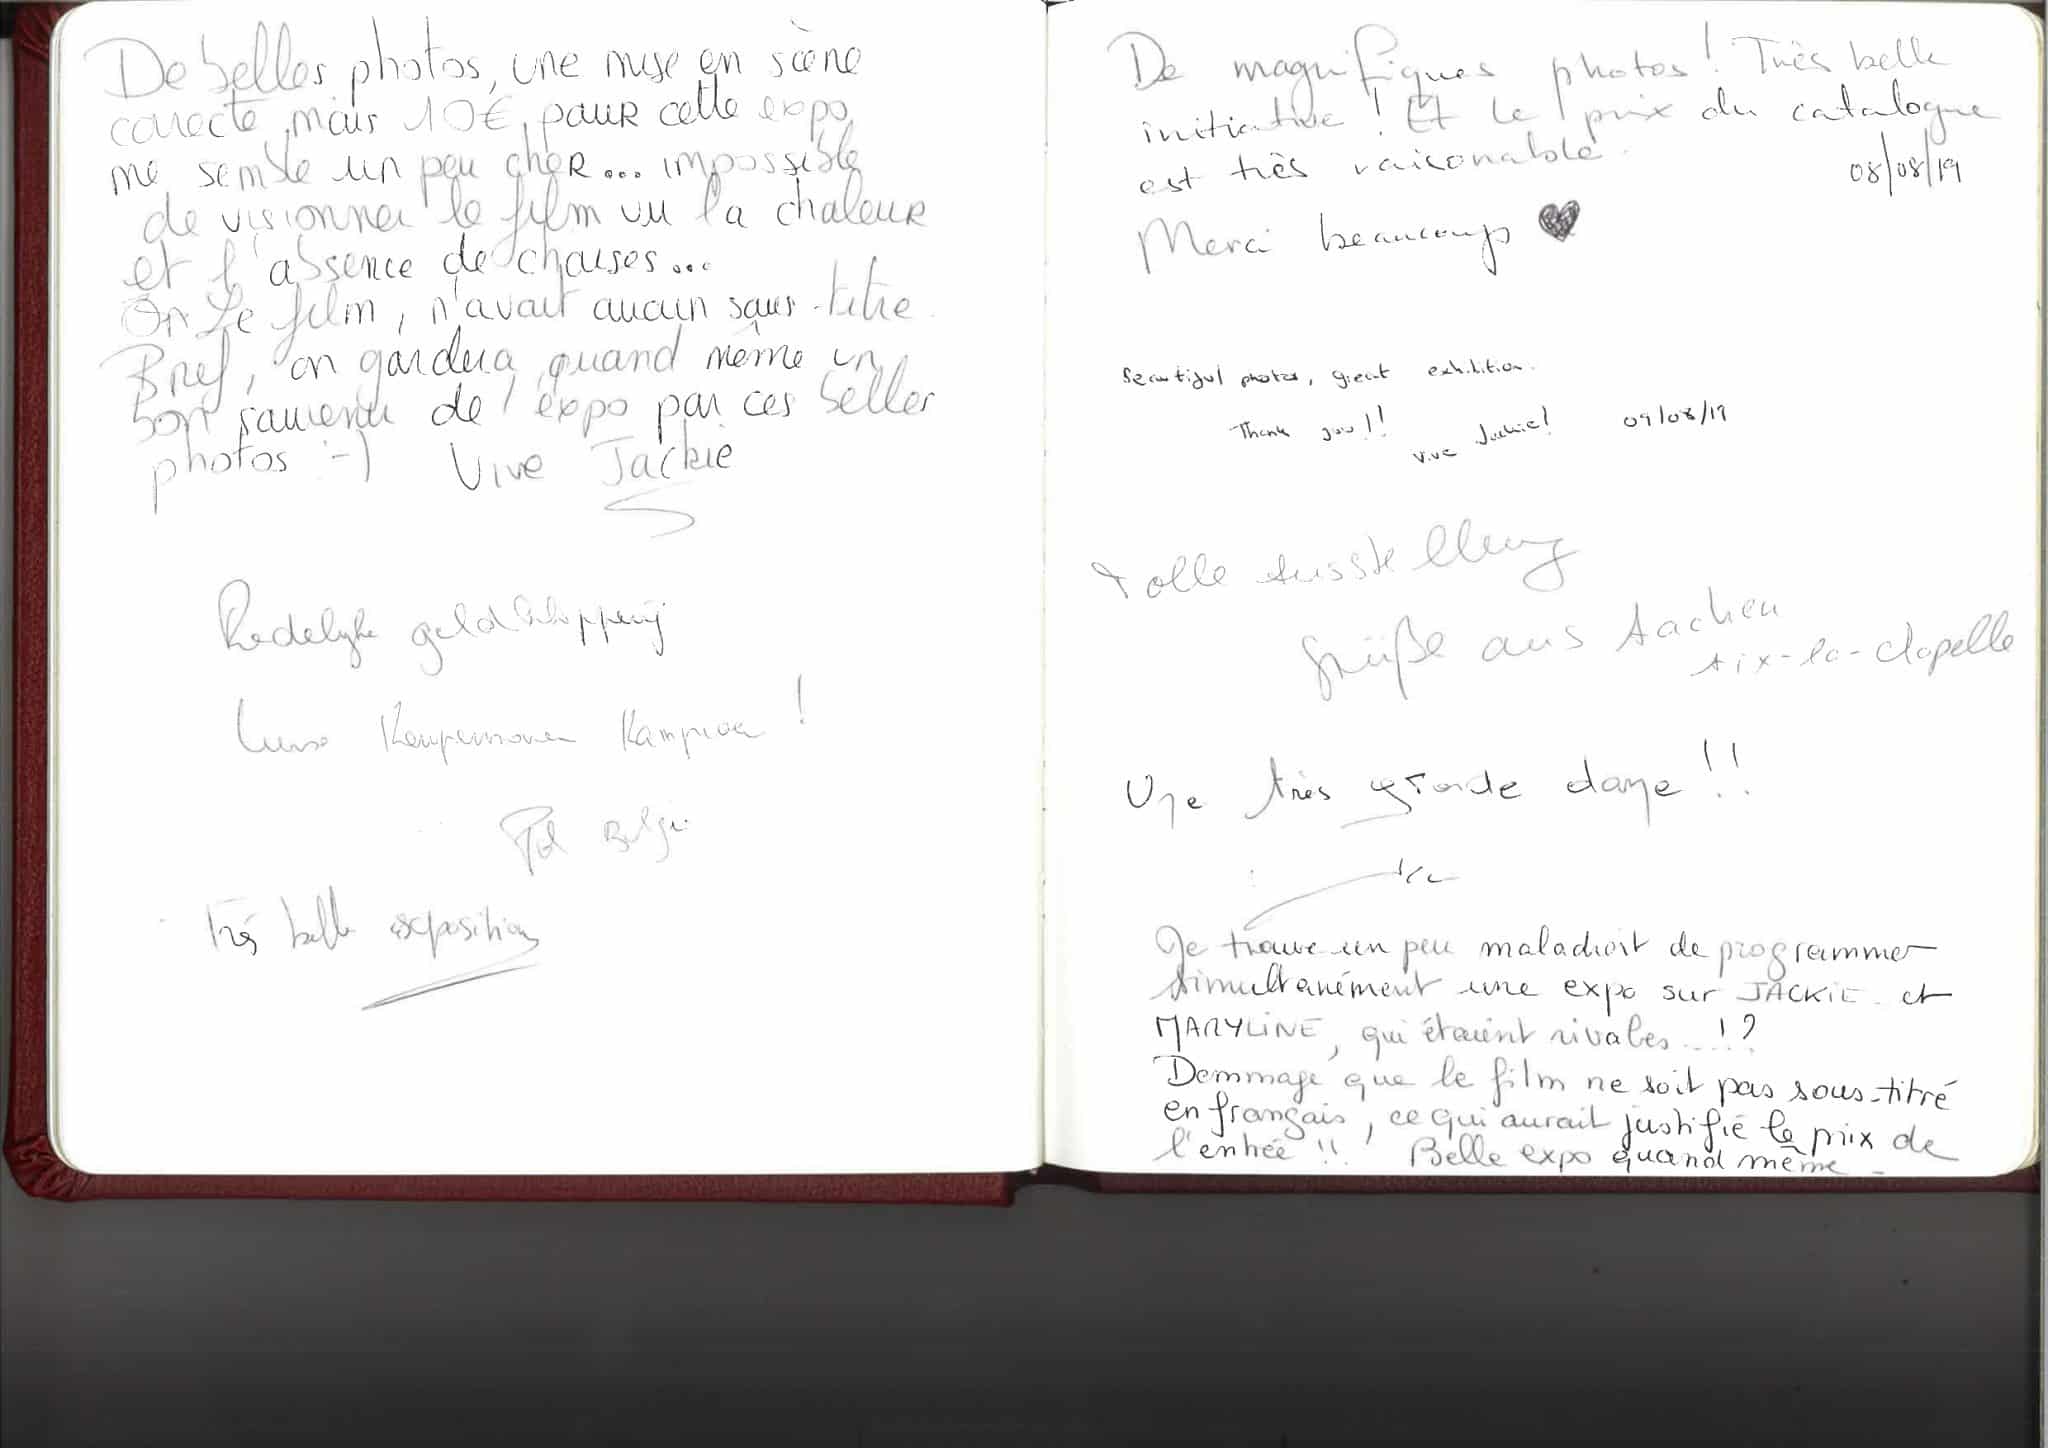 De belles photos, une mise en scène
correcte, mais 10€ pour cette expo
me semble un peu cher... impossible
de visionner le film vu la chaleur
et l'absence de chaises...
On le film, n'avait aucun sous-titre.
Bref, on gardera quand même un
bon souvenir de l'expo par ces belles
photos :-) Vive Jackie
Redelijke geldklopperij
Kampioen !
België
Très belle exposition
De magnifiques photos ! Très belle
initiative ! Et le prix du catalogue
est très raisonable.
08/08/19
Merci beaucoup ♥
Beautiful photos, great exhibition.
Thank you!! Vive Jackie! 09/08/19
Tolle Ausstellung
Grüße aus Aachen
Aix-la-Chapelle
Une très grande dame !!
Je trouve un peu maladroit de programmer
simultanément une expo sur JACKIE et
MARYLINE, qui étaient rivales...!?
Dommage que le film ne soit pas sous-titré
en français, ce qui aurait justifié le prix de
l'entrée !! Belle expo quand même.